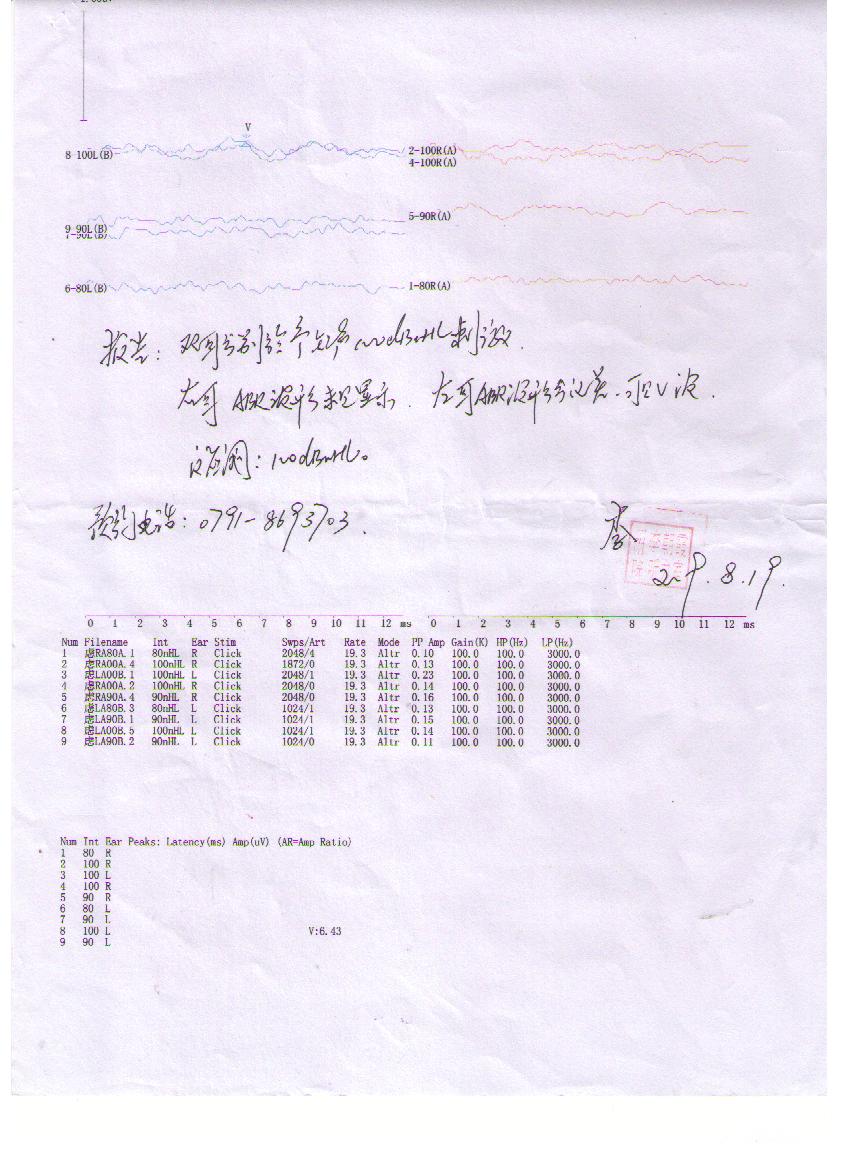 V
8-100L(B)
2-100R(A)
4-100R(A)
5-90R(A)
9-90L(B)
7-90L(B)
6-80L(B)
1-80R(A)
报告：双耳分别给予短声100dBnHL刺激.
右耳ABR波形未显示. 左耳ABR波形分化差.可见V波.
反应阈：100dBnHL。
预约电话：0791-8693703.
8.19.
0 1 2 3 4 5 6 7 8 9 10 11 12 ms 0 1 2 3 4 5 6 7 8 9 10 11 12 ms
Num Filename Int Ear Stim Swps/Art Rate Mode PP Amp Gain(K) HP(Hz) LP(Hz)
1 虑RA80A.1 80nHL R Click 2048/4 19.3 Altr 0.10 100.0 100.0 3000.0
2 虑RA00A.4 100nHL R Click 1872/0 19.3 Altr 0.13 100.0 100.0 3000.0
3 虑LA00B.1 100nHL L Click 2048/1 19.3 Altr 0.23 100.0 100.0 3000.0
4 虑RA00A.2 100nHL R Click 2048/0 19.3 Altr 0.14 100.0 100.0 3000.0
5 虑RA90A.4 90nHL R Click 2048/0 19.3 Altr 0.16 100.0 100.0 3000.0
6 虑LA80B.3 80nHL L Click 1024/1 19.3 Altr 0.13 100.0 100.0 3000.0
7 虑LA90B.1 90nHL L Click 1024/1 19.3 Altr 0.15 100.0 100.0 3000.0
8 虑LA00B.5 100nHL L Click 1024/1 19.3 Altr 0.14 100.0 100.0 3000.0
9 虑LA90B.2 90nHL L Click 1024/0 19.3 Altr 0.11 100.0 100.0 3000.0
Num Int Ear Peaks: Latency(ms) Amp(uV) (AR=Amp Ratio)
1 80 R
2 100 R
3 100 L
4 100 R
5 90 R
6 80 L
7 90 L
8 100 L V:6.43
9 90 L